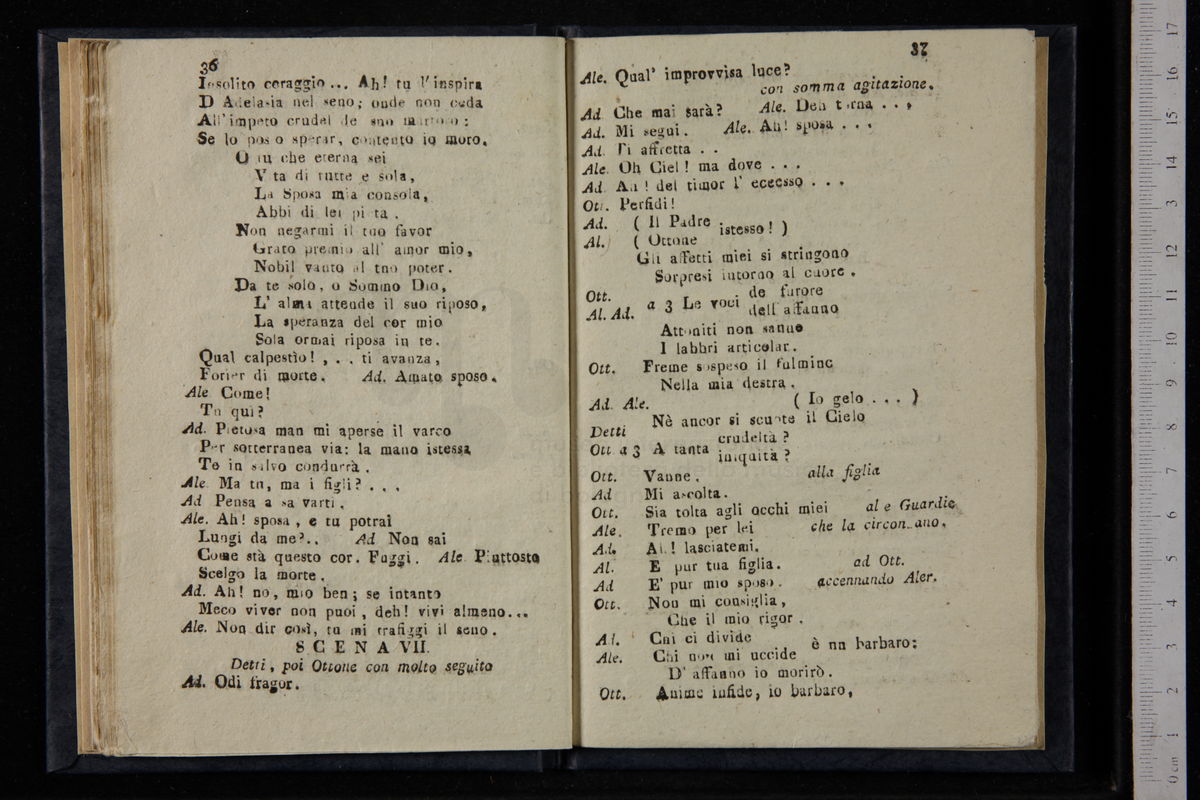 36
Insolito coraggio... Ah! tu l'inspira
D Adelasia nel seno; onde non ceda
All'impeto crudel de suo martoro:
Se lo pos o sperar, contento io moro.
O tu che eterna sei
V ta di tutte e sola,
La Sposa mia consola,
Abbi di lei pi ta .
Non negarmi il tuo favor
Grato premio all' amor mio,
Nobil vanto al tno poter.
Da te solo, o Sommo Dio,
L' alma attende il suo riposo,
La speranza del cor mio
Sola ormai riposa in te.
Qual calpestìo! , . . ti avanza,
Forier di morte. Ad. Amato sposo.
Ale Come!
Tu qui?
Ad. Pietosa man mi aperse il varco
Per sotterranea via: la mano istessa
Te in salvo condurrà.
Ale. Ma tu, ma i figli? . . .
Ad Pensa a sa varti.
Ale. Ah! sposa, e tu potrai
Lungi da me?.. Ad Non sai
Come stà questo cor. Fuggi. Ale. Piuttosto
Scelgo la morte.
Ad. Ah! no, mio ben; se intanto
Meco viver non puoi, deh! vivi almeno...
Ale. Non dir così, tu mi trafiggi il seno.
SCENA VII.
Detti, poi Ottone con molto seguito
Ad. Odi fragor.
37
Ale. Qual' improvvisa luce?
con somma agitazione.
Ad Che mai sarà? Ale. Deh torna . . .
Ad. Mi segui. Ale. Ah! sposa . . .
Ad. Ti affretta . .
Ale. Oh Ciel! ma dove . . .
Ad Ah! del timor l' eccesso . . .
Ott. Perfidi!
Ad. ( Il Padre istesso! )
Al. ( Ottone
Gli affetti miei si stringono
Sorpresi intorno al cuore.
Ott. de furore
Al. Ad. a 3 Le voci dell'affanno
Attoniti non sanno
I labbri articolar.
Ott. Freme sospeso il fulmine
Nella mia destra.
Ad. Ale. ( Io gelo . . . )
Detti Nè ancor si scuote il Cielo
Ott a 3 A tanta crudeltà?
iniquità?
Ott. Vanne. alla figlia
Ad Mi ascolta.
Ott. Sia tolta agli occhi miei al e Guardie
Ale. Tremo per lei che la circon ano.
Ad. Ah! lasciatemi.
Al. E pur tua figlia. ad Ott.
Ad E' pur mio sposo. accennando Aler.
Ott. Non mi consiglia,
Che il mio rigor.
Ad. Chi ci divide è un barbaro:
Ale. Chi non mi uccide
D' affanno io morirò.
Ott. Anime infide, io barbaro,